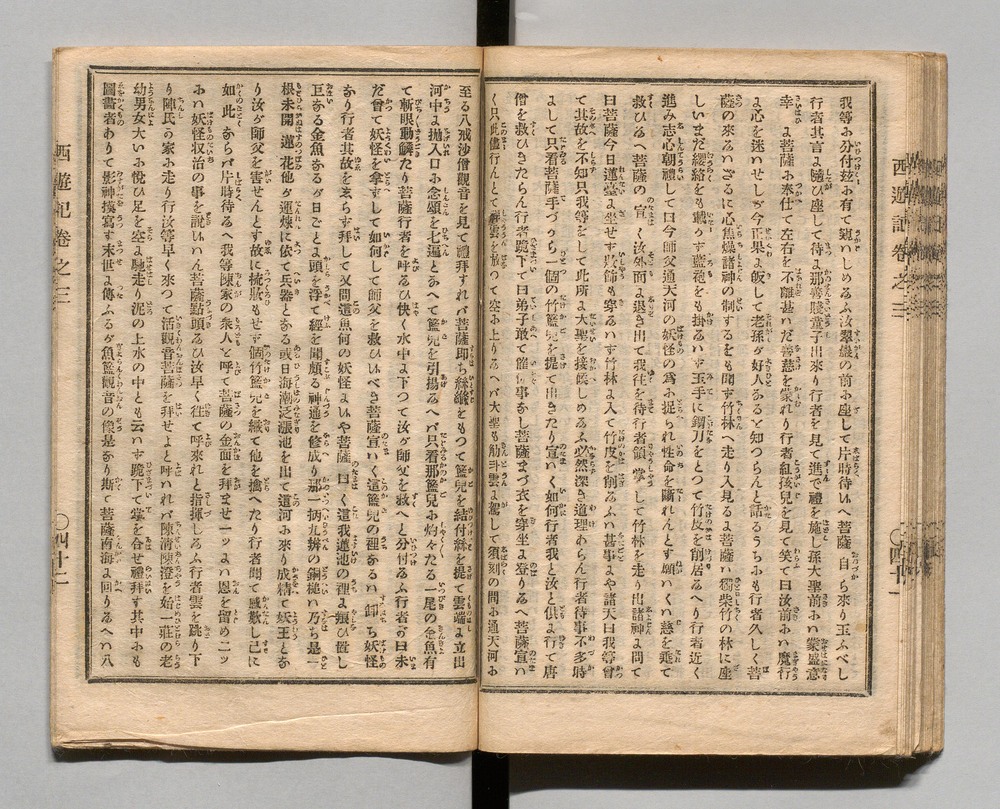 我等お分付玆お有て
翠巖の前お座して片時待いへ菩薩自ら來り玉ふべし
行者其言よ隨ひ座して待よ那善財童子出來り行者を見て進で禮を施し孫大聖前おハ蒙盛意
幸よ菩薩お奉仕て左右を不離甚だ善慈を蒙れり行者紅孩兒を見て笑て曰汝前おハ魔行
よ心を迷ハせしが今正果よ皈して老孫が好人あると知つらんと話るうちおも行者久しく菩
薩の來るハざるに心焦燥諸神の制するをも聞ず竹林へ走り入見るよ菩薩ハ獨紫竹の林に座
しいまだ纓絡をも戴うず藍袍をも掛るハず玉手に鋼刀をとつて竹皮を削居るへり行者近く
進み志心朝禮して曰今師父通天河の妖怪の爲お捉られ性命を斷れんとす願くハ慈を垂て
救ひるへ菩薩の宣く汝外面よ退き出て我往を待行者領掌して竹林を走り出諸神よ問て
曰菩薩今日蓮臺よ坐せず
竹林よ入て竹皮を削るふハ甚事よや諸天曰我等曾
て其故を不知只我等をして此所よ大聖を接候しめるふ必然深き道理あらん行者待事不多時
よして只看菩薩手づから一個の竹籃兒を提て出きたり宣ハく如何行者我と汝と倶よ行て唐
僧を救ひきたらん行者跪下て曰弟子敢て催促事なし菩薩まづ衣を穿坐よ登りるへ菩薩宣ハ
く只此儘行んとて祥雲を放つて空お上りるへバ大聖も觔斗雲よ駕して須刻の間お通天河お
至る八戒沙僧觀音を見て禮拜すれバ菩薩即ち絲縧をもつて籃兒を結付絲を提て雲端よ立出
河中よ拋入口お念頌を七遍となへて籃兒を引揚るへバ只看那籃兒お灼々たる一尾の金魚有
て斬眼動鱗たり菩薩行者を呼るひ快く水中よ下つて汝が師父を救へと分付るふ行者が曰未
だ曾て妖怪を拿ずして如何して師父を救ひハべき菩薩宣ハく這籃兒の裡あるハ卽ち妖怪
あり行者其故を志らず拜して又問這魚何の妖怪よいや菩薩の曰く這我蓮池の裡よ養ひ置し
巨なる金魚あるが日ごとよ頭を浮て經を聞頗る神通を修成り那一柄九瓣の銅槌ハ乃ち是一
根未開蓮花他が運煉に依て兵器とある或日海潮泛漲池を出て這河お來り成精て妖王とあ
り汝が師父を害せんとす故に梳粧もせず個竹籃兒を織て他を擒へたり行者聞て感歎し已に
如此あらバ片時待るへ我等陳家の衆人と呼て菩薩の金面を拜ませ一ツよハ恩を留め二ツ
おハ妖怪收治の事を説しハん菩薩點頭るひ汝早く往て呼來れと指揮しるふ行者雲を跳り下
り陳氏の家お走り行汝等早く來つて活觀音菩薩を拜せよと呼ハれバ陳清陳澄を始一莊の老
幼男女大いお悦び足を空よ馳走り泥の上水の中とも云ハず跪下て掌を合せ禮拜す其中おも
圖畫者ありて影神摸寫す末世よ傳ふるが魚籃觀音の像是なり斯て菩薩南海よ回りるへバ八
西遊記卷之三　〇四十一
西遊記卷之三　〇四十二